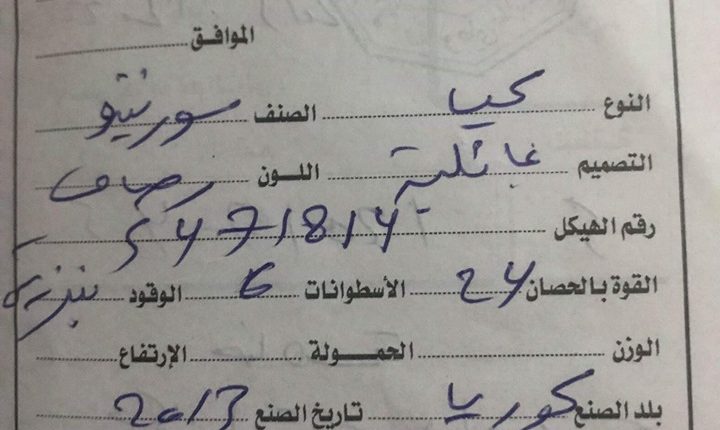 الموافق
النوع كيا الصنف سورنتو
التصميم عائلية اللون رصاصي
رقم الهيكل 5471814
القوة بالحصان 24 الأسطوانات 6 الوقود بنزين
الوزن الحمولة الإرتفاع
بلد الصنع كوريا تاريخ الصنع 2013